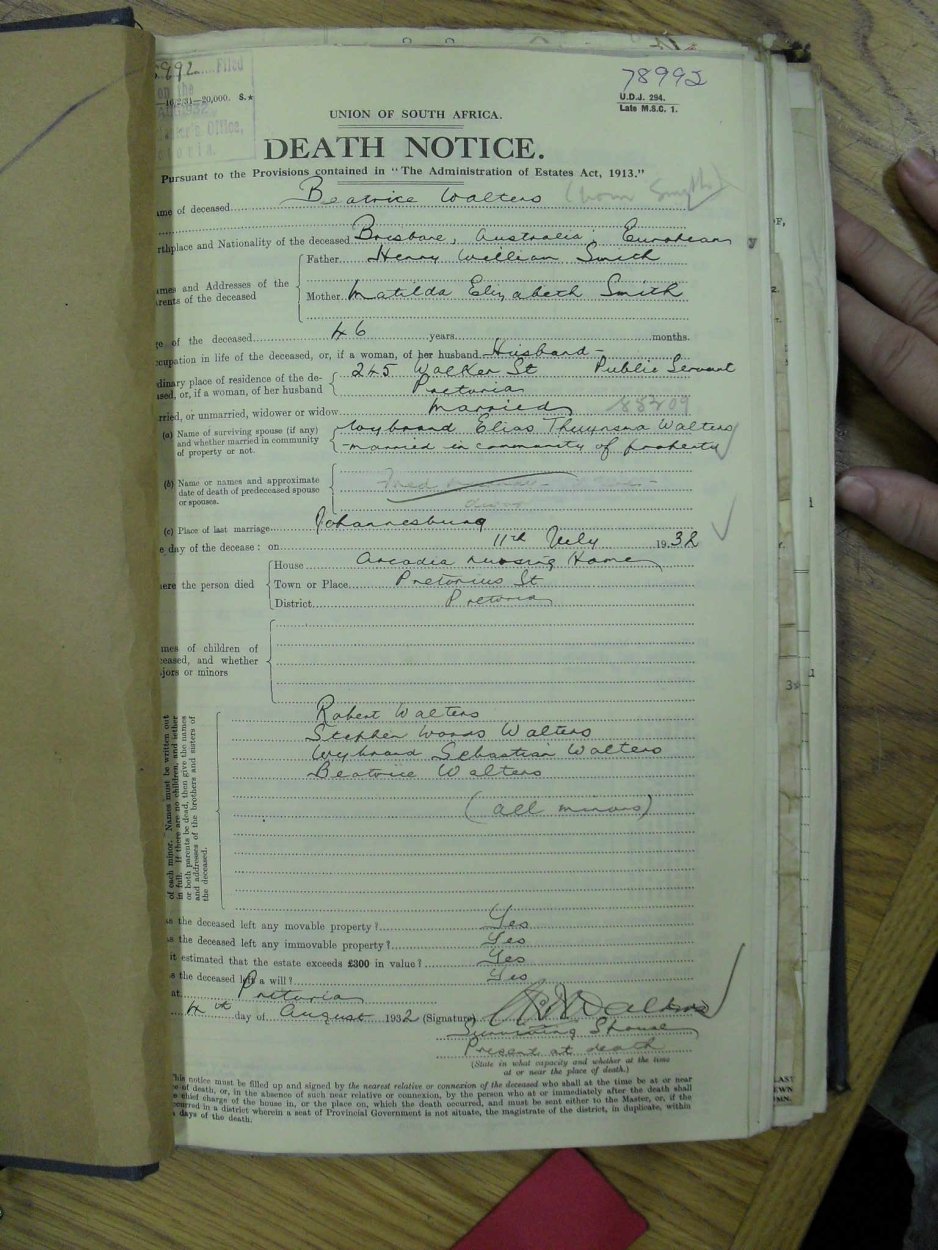 5992 Filed
on the
—16/2/31—20,000. S.★
78992
U.D.J. 294.
Late M.S.C. 1.
UNION OF SOUTH AFRICA.
DEATH NOTICE.
Pursuant to the Provisions contained in "The Administration of Estates Act, 1913."
ame of deceased Beatrice Walters (born Smyth)
rthplace and Nationality of the deceased Brisbane, Australia. European
ames and Addresses of the
rents of the deceased
Father Henry William Smith
Mother Matilda Elizabeth Smith
ge of the deceased 46 years months.
ccupation in life of the deceased, or, if a woman, of her husband Husband -
Public Servant
dinary place of residence of the de-
ased, or, if a woman, of her husband
245 Walker St
Pretoria
rried, or unmarried, widower or widow Married 88209
(a) Name of surviving spouse (if any)
and whether married in community
of property or not.
Wybrand Elias Walters
married in community of property
(b) Name or names and approximate
date of death of predeceased spouse
or spouses.
(c) Place of last marriage Johannesburg
e day of the decease: on 11th July 1932
ere the person died
House Arcadia Nursing Home
Town or Place Pretorius St
District Pretoria
mes of children of
ceased, and whether
jors or minors
of each minor. Names must be written out
in full. If there are no children, and either
or both parents be dead, then give the names
and addresses of the brothers and sisters of
the deceased.
Robert Walters
Stephen Woods Walters
Wybrand Sebastian Walters
Beatrice Walters
(all minors)
as the deceased left any movable property? Yes
as the deceased left any immovable property? Yes
it estimated that the estate exceeds £300 in value? Yes
s the deceased left a will? Yes
at Pretoria
4th day of August 1932 (Signature) Walters
Surviving Spouse
Present at death
(State in what capacity and whether at the time
at or near the place of death.)
This notice must be filled up and signed by the nearest relative or connexion of the deceased who shall at the time be at or near
e of death, or, in the absence of such near relative or connexion, by the person who at or immediately after the death shall
e chief charge of the house in, or the place on, which the death occurred, and must be sent either to the Master, or, if the
ccurred in a district wherein a seat of Provincial Government is not situate, the magistrate of the district, in duplicate, within
days of the death.